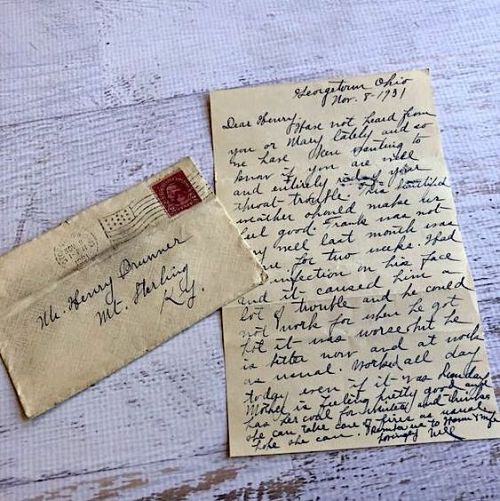 Georgetown Ohio
Nov. 8-1931
Dear Henry,
Have not heard from
you or Mary lately and so
we have been wanting to
know if you are well
and entirely rid of your
throat trouble. This beautiful
weather should make us
feel good. Frank was not
very well last month was
for two weeks. Had
infection on his face
and it caused him a
lot of trouble and he could
not work for when he got
hot it was worse but he
is better now and at work
as usual. Worked all day
today even if it was Sunday.
Mother is feeling pretty good and
has her coal for winter and thinks
she can take care of fires as usual.
Hope she can. Remember us to
Lovingly Nell
Mr. Henry Brunner
Mt. Sterling
Ky.